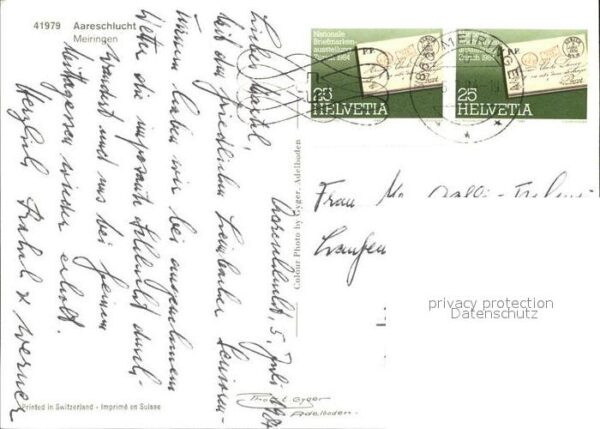 41979 Aareschlucht
Meiringen
Nationale
Briefmarken-
ausstellung
Zürich 1984
25
HELVETIA
Nationale
Briefmarken-
ausstellung
Zürich 1984
25
HELVETIA
3860 MEIRINGEN
Aareschlucht, 5. Juli 1984
mit dem friedlichen
haben wir bei angenehmem
Wetter die imposante Schlucht durch-
wandert und uns bei feinem
Mittagessen wieder erholt.
Herzlich & Werner
Frau
Colour Photo by Gyger, Adelboden
Gyger
Adelboden.
privacy protection
Datenschutz
Printed in Switzerland - Imprimé en Suisse